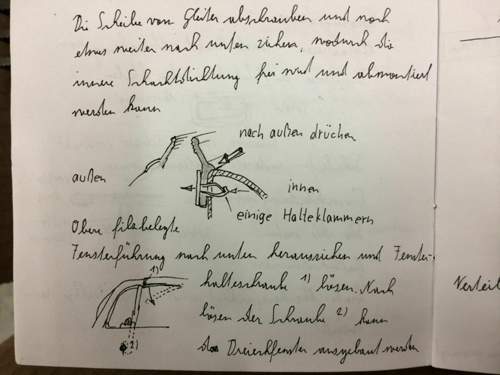 Die Scheibe vom Gleiter abschrauben und noch
etwas weiter nach unten ziehen, wodurch die
innere Schachtdichtung frei wird und abmontiert
werden kann
nach außen drücken
außen
innen
einige Halteklammern
Obere filzbelegte
Fensterführung nach unten herausziehen und Fenster-
halteschraube 1) lösen. Nach
1)
lösen der Schraube 2) kann
2)
das Dreieckfenster ausgebaut werden
Verteil